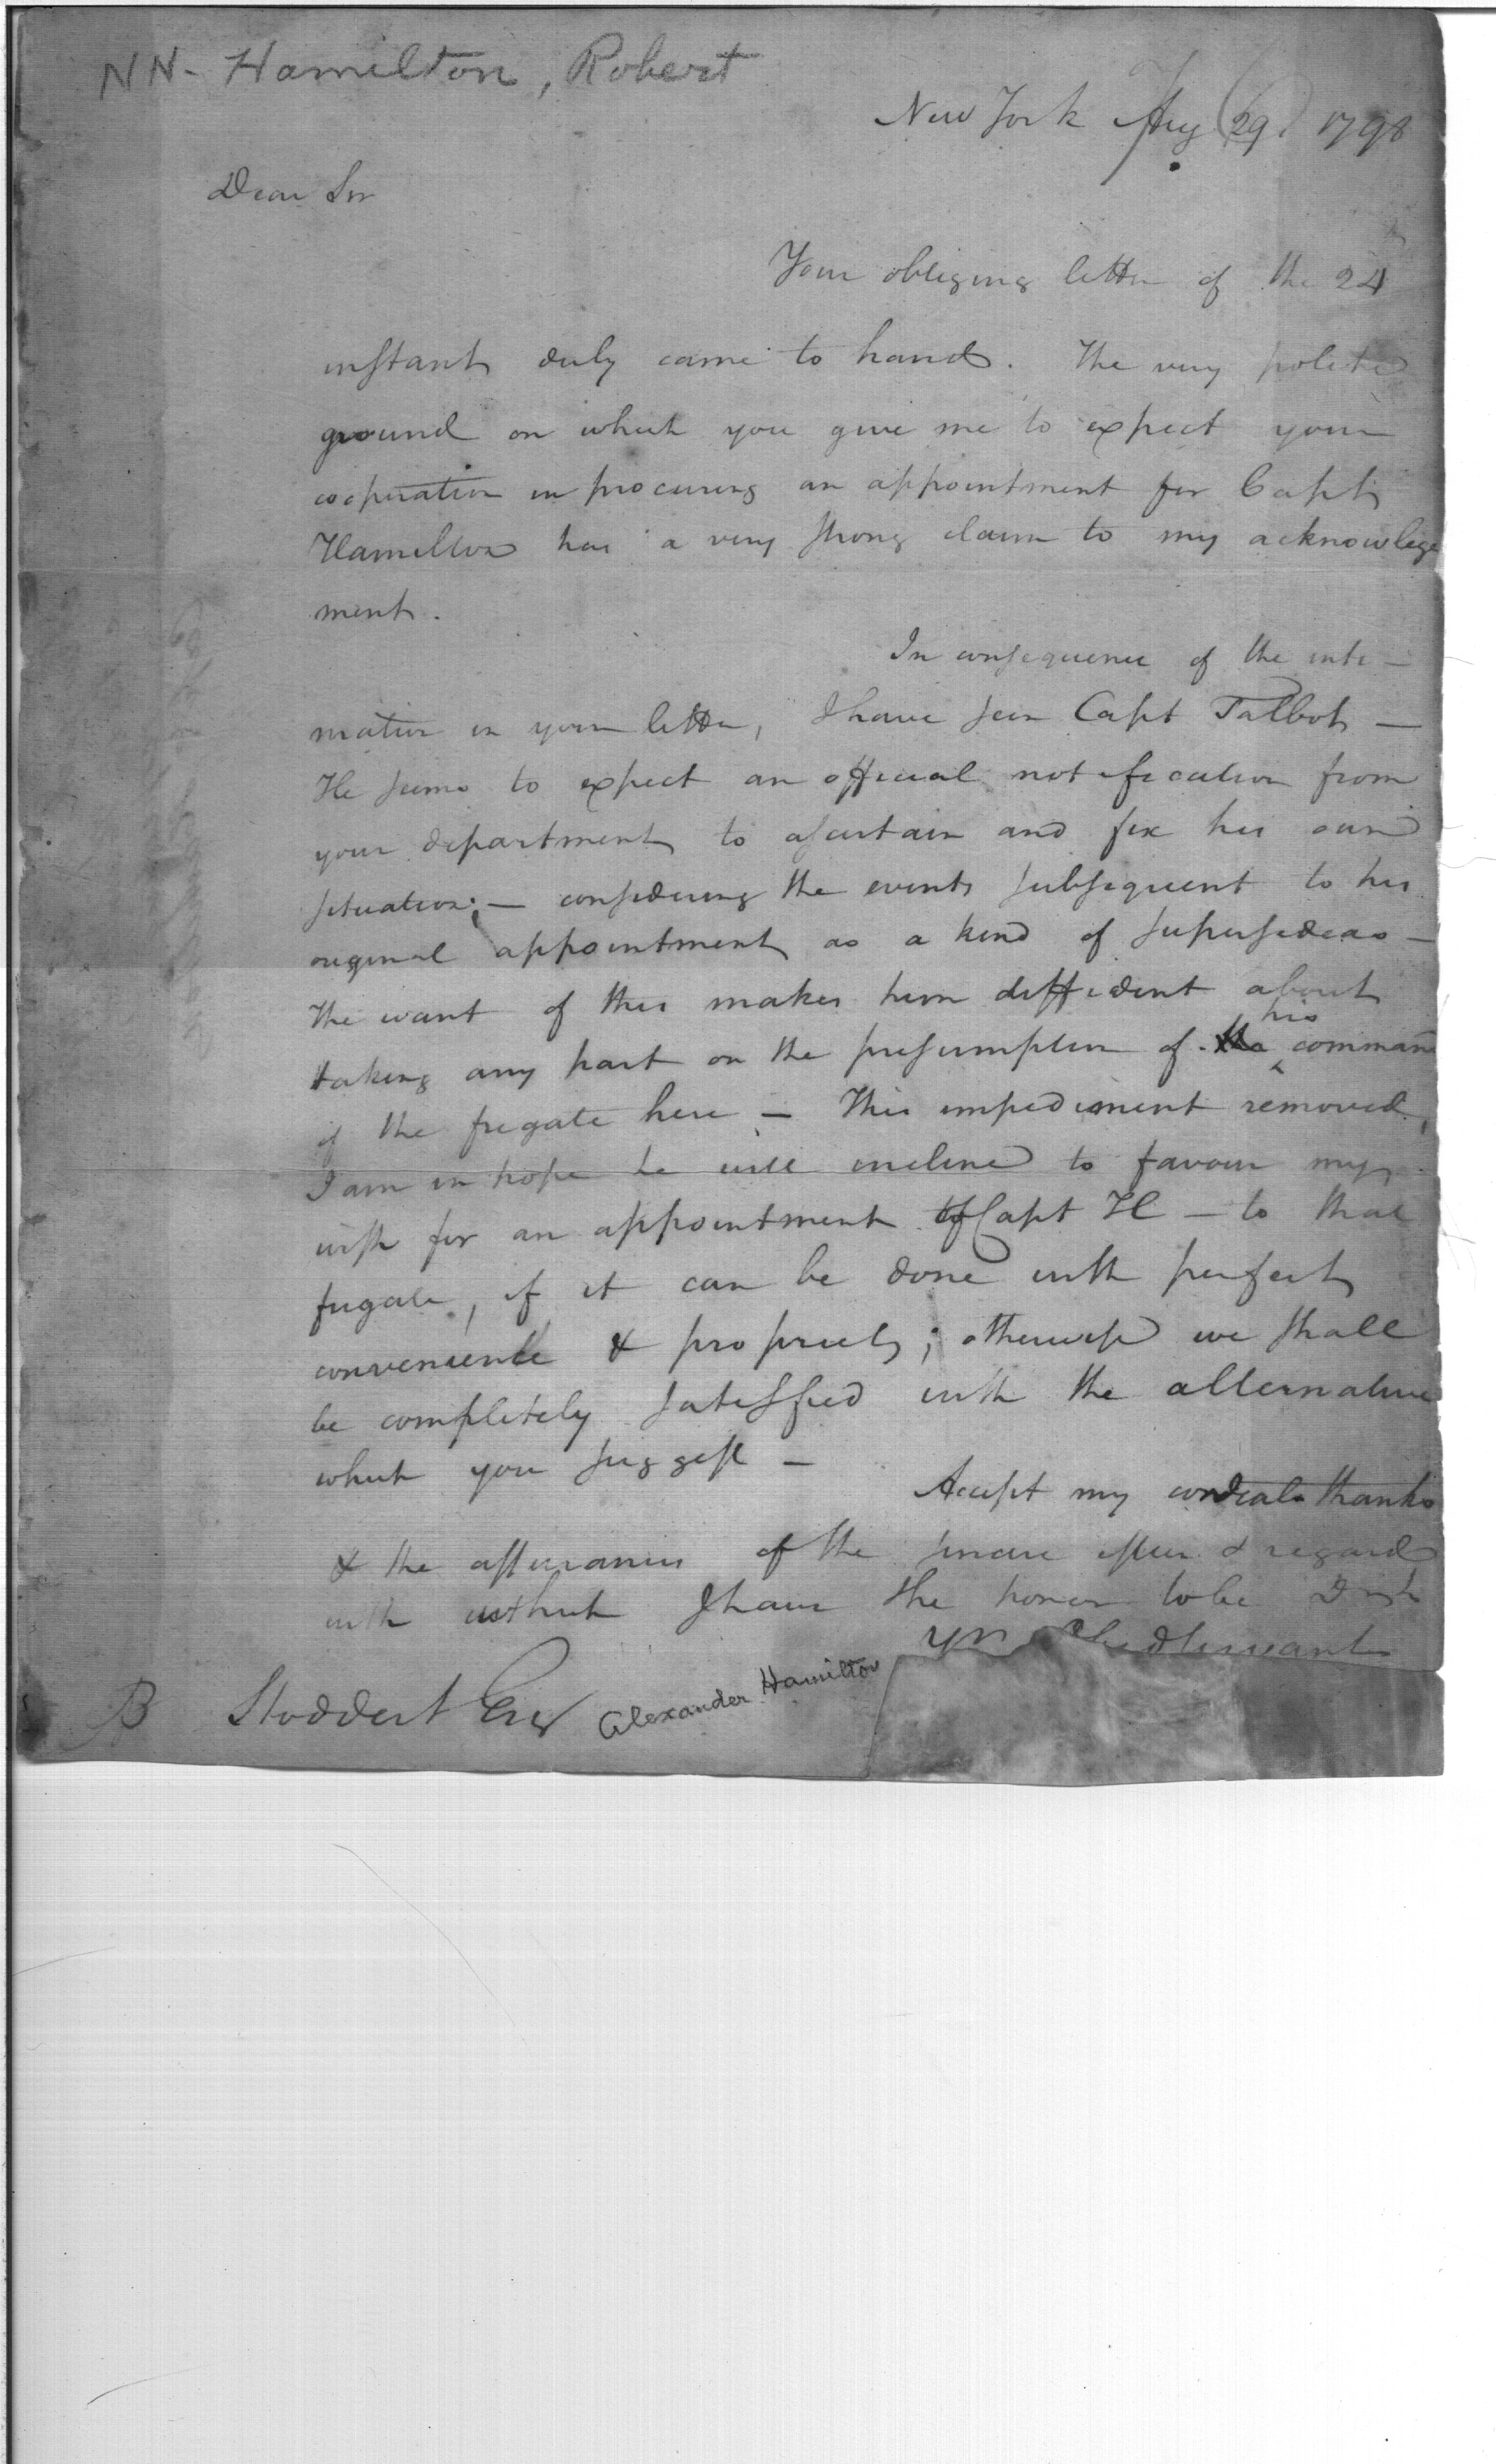 NN- Hamilton, Robert
New York Aug 29 1798
Dear Sir
Your obliging letter of the 24
instant duly came to hand. The very polite
ground on which you give me to expect your
cooperation in procuring an appointment for Capt
Hamilton has a very strong claim to my acknowlege
ment.
In consequence of the inti-
mation in your letter, I have seen Capt Talbot —
He seems to expect an official notification from
your department to ascertain and fix his own
situation; — considering the events subsequent to his
original appointment as a kind of supersedeas —
The want of this makes him diffident about
taking any part on the presumption of the his command
of the frigate here — This impediment removed,
I am in hope he will incline to favour my
wish for an appointment of Capt H — to that
frigate, if it can be done with perfect
convenience & propriety; otherwise we shall
be completely satisfied with the alternative
which you suggest —
Accept my cordial thanks
& the assurances of the sincere esteem & regard
with which I have the honor to be Dr Sir
Yr Obed servant
B Stoddert Esq
Alexander Hamilton